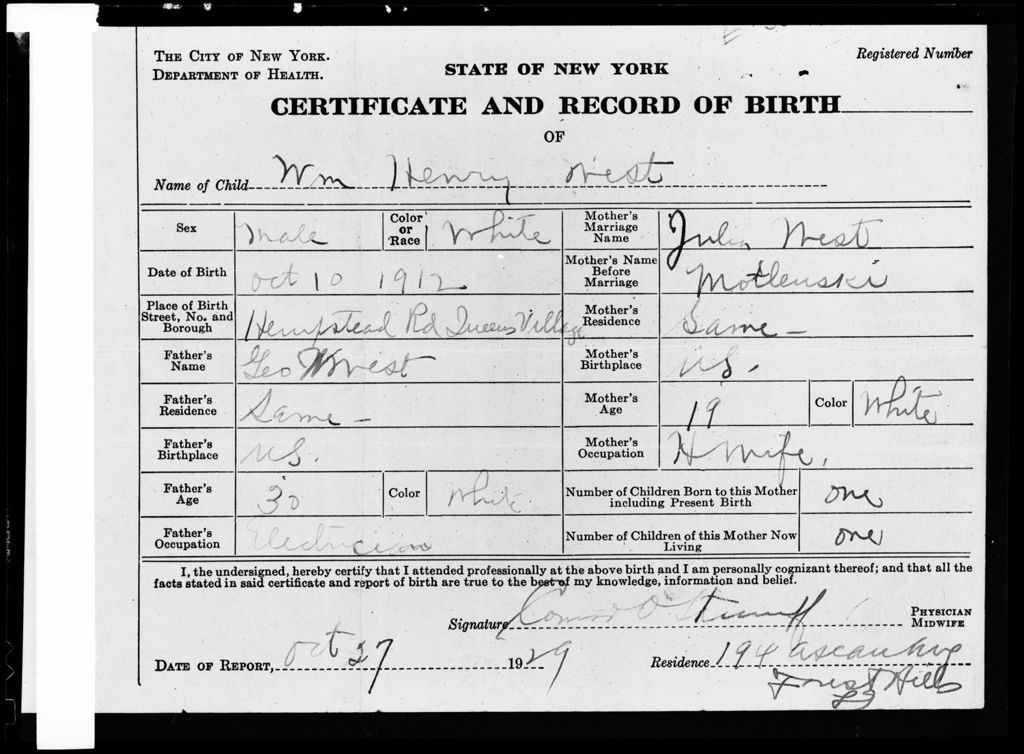 THE CITY OF NEW YORK.
DEPARTMENT OF HEALTH.
STATE OF NEW YORK
Registered Number
CERTIFICATE AND RECORD OF BIRTH
OF
Name of Child Wm Henry West
Sex Male Color or Race White
Mother's Marriage Name Julia West
Date of Birth Oct 10 1912
Mother's Name Before Marriage Motlenski
Place of Birth Street, No. and Borough Hempstead Rd Queens Village
Mother's Residence Same —
Father's Name Geo West
Mother's Birthplace U.S.
Father's Residence Same —
Mother's Age 19 Color White
Father's Birthplace U.S.
Mother's Occupation H Wife.
Father's Age 30 Color White
Number of Children Born to this Mother including Present Birth one
Father's Occupation Electrician
Number of Children of this Mother Now Living one
I, the undersigned, hereby certify that I attended professionally at the above birth and I am personally cognizant thereof; and that all the
facts stated in said certificate and report of birth are true to the best of my knowledge, information and belief.
Signature
PHYSICIAN
MIDWIFE
DATE OF REPORT, Oct 27 1929
Residence 194 Ascan Ave
Forest Hills